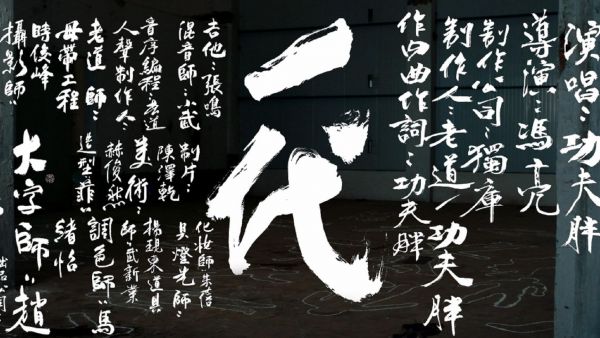 演唱:功夫胖
導演:馮亮
制作公司:獨庫
制作人:老道/功夫胖
作曲作詞:功夫胖
一代
吉他:張鳴
混音師:小武
音序編程:老道
人聲制作人:
老道師:
母带工程
時俊峰
攝影師:
化妝師:朱蓓
具燈光師:
制片:
陳澤乾
道具
師:武新業
美術:
赫俊然
調色師:馬
造型:菲
緒怡
大字師:趙